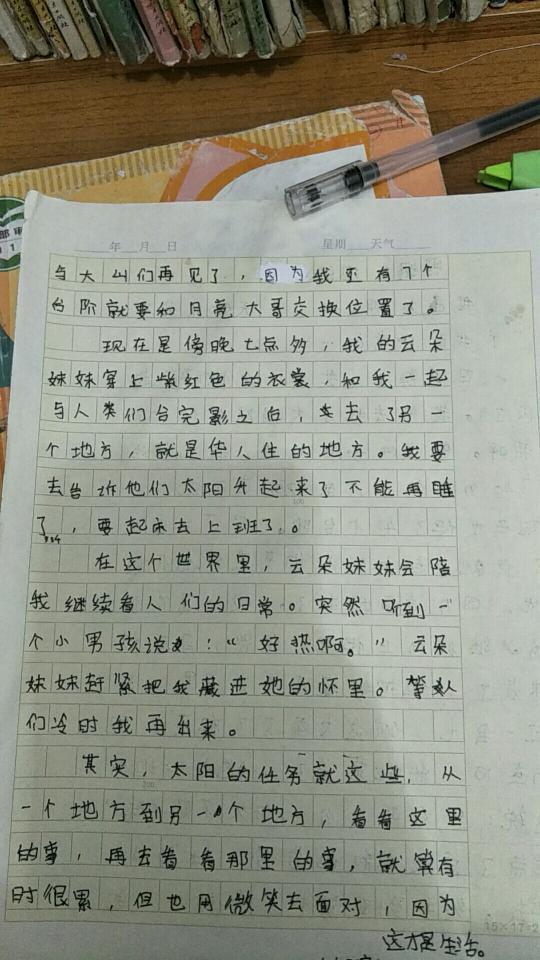 年 月 日 星期 天气
与大山们再见了，因为我还有7个
台阶就要和月亮大哥交换位置了。
现在是傍晚七点多，我的云朵
妹妹穿上紫红色的衣裳，和我一起
与人类们合完影之后，又去了另一
个地方，就是华人住的地方。我要
去告诉他们太阳升起来了不能再睡
100
了，要起床去上班了。
在这个世界里，云朵妹妹会陪
我继续看人们的日常。突然听到一
个小男孩说：“好热啊。”云朵
妹妹赶紧把我藏进她的怀里。等人
们冷时我再出来。
其实，太阳的任务就这些，从
200
一个地方到另一个地方，看看这里
的事，再去看看那里的事，就算有
时很累，但也用微笑去面对，因为
15×17=2
这才是生活。